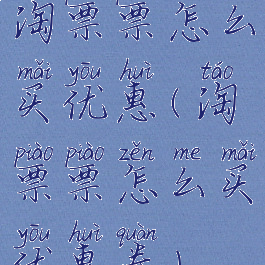 淘票票怎么
mǎi yōu huì táo
买优惠(淘
piào piào zěn me mǎi
票票怎么买
yōu huì quàn
优惠券)